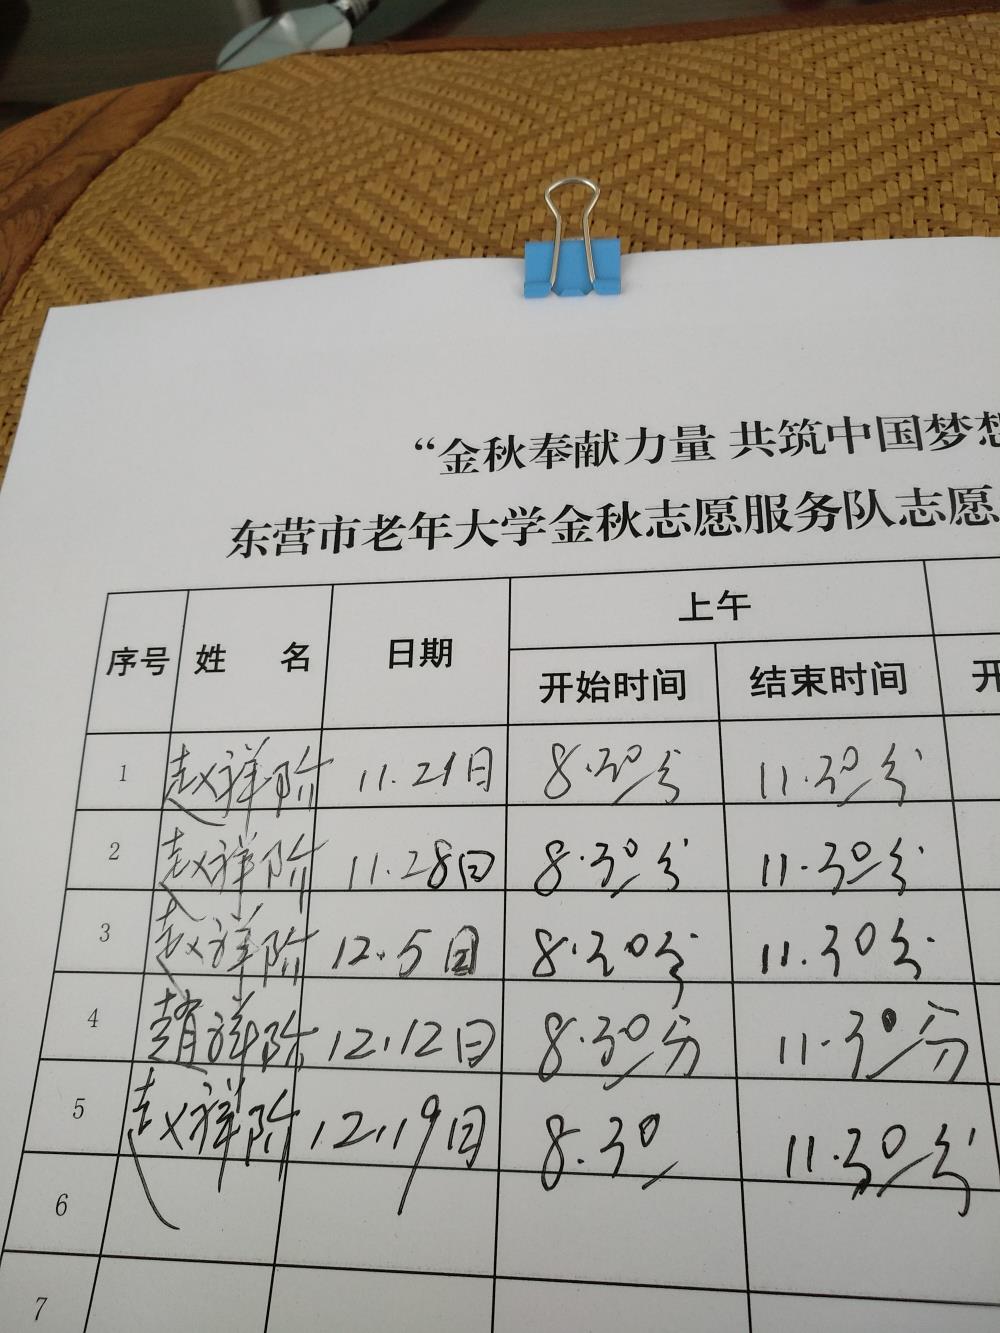 “金秋奉献力量 共筑中国梦想
东营市老年大学金秋志愿服务队志愿
序号 姓 名 日期 上午
开始时间 结束时间 开
1 赵祥阶 11.21日 8.30分 11.30分
2 赵祥阶 11.28日 8.30分 11.30分
3 赵祥阶 12.5日 8.30分 11.30分
4 趙祥阶 12.12日 8.30分 11.30分
5 赵祥阶 12.19日 8.30 11.30分
6
7